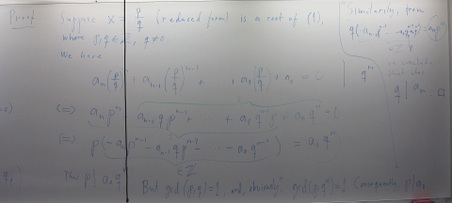 Proof Suppose x = p/q (reduced form) is a root of (1),
where p, q ∈ ℤ, q ≠ 0
We have
a_n (p/q)^n + a_{n-1} (p/q)^{n-1} + ... + a_1 (p/q) + a_0 = 0 | q^n
(=) a_n p^n + a_{n-1} q p^{n-1} + ... + a_1 q^{n-1} p + a_0 q^n = 0
(=) p(-a_n p^{n-1} - a_{n-1} q p^{n-2} - ... - a_1 q^{n-1}) = a_0 q^n
∈ ℤ
Thus p | a_0 q^n But gcd(p,q)=1, and, obviously gcd(p,q^n)=1 Consequently p | a_0
Similarly, from
∈ ℤ
q | a_n . □